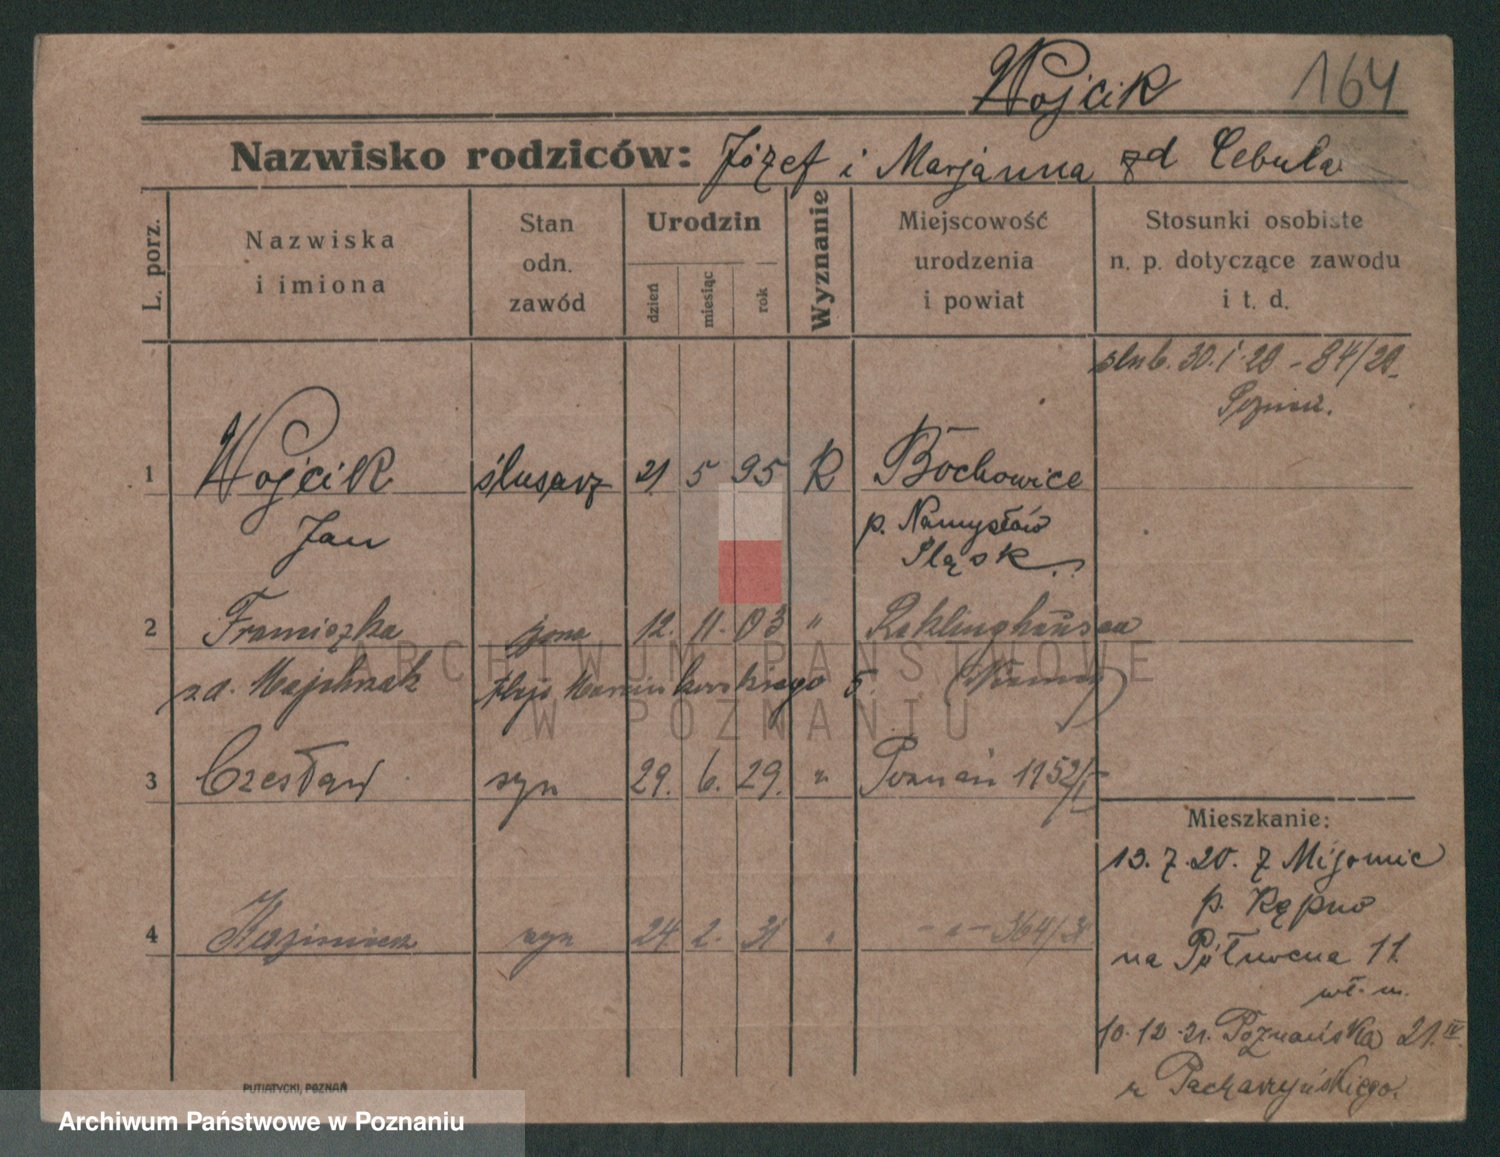 Wojcik 164
Nazwisko rodziców: Józef i Marjanna zd Cebula
L. porz.
Nazwiska
i imiona
Stan
odn.
zawód
Urodzin
dzień
miesiąc
rok
Wyznanie
Miejscowość
urodzenia
i powiat
Stosunki osobiste
n. p. dotyczące zawodu
i t. d.
ślub. 30. I. 29 - 84/29
1 Wojcik ślusarz 21. 5 95 K Bochowice
Jan p. Namysłów
Śląsk
2 Franciszka żona 12. 11. 03 " Reklinghausen
zd. Majchrzak 5.
3 Czesław syn 29. 6. 29. " Poznań 1152/
Mieszkanie:
13. 7. 20. z Mijomic
p. Kępno
4 Kazimierz syn 24. 2. 31 " - " - 364/31
na Północna 11
wł. m.
10. 12. 21. Poznańska 21. IV
PUTIATYCKI, POZNAŃ
ARCHIWUM PAŃSTWOWE
W POZNANIU
Archiwum Państwowe w Poznaniu